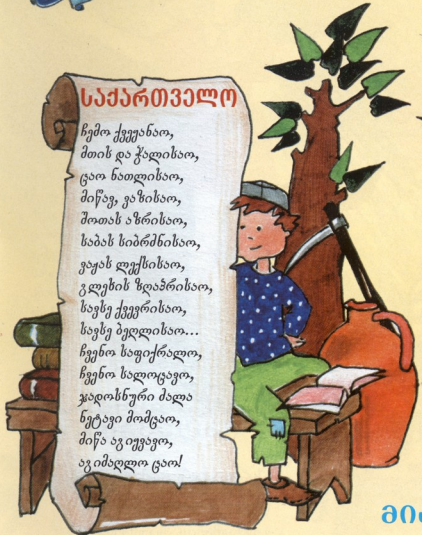 საქართველო
ჩემო ქვეყანაო,
მთის და ჭალისაო,
ცაო ნათლისაო,
მიწავ, ვაზისაო,
შოთას აზრისაო,
საბას სიბრმნისაო,
ვაჟას ლექსისაო,
გლეხის ზღაპრისაო,
სავსე ქვევრისაო,
სავსე ბეღლისაო...
ჩვენო საფიქრალო,
ჩვენო სალოცავო,
ჯადოსნური ძალა
ნეტავი მომცაო,
მიწა აგიყვავო,
აგიმაღლო ცაო!